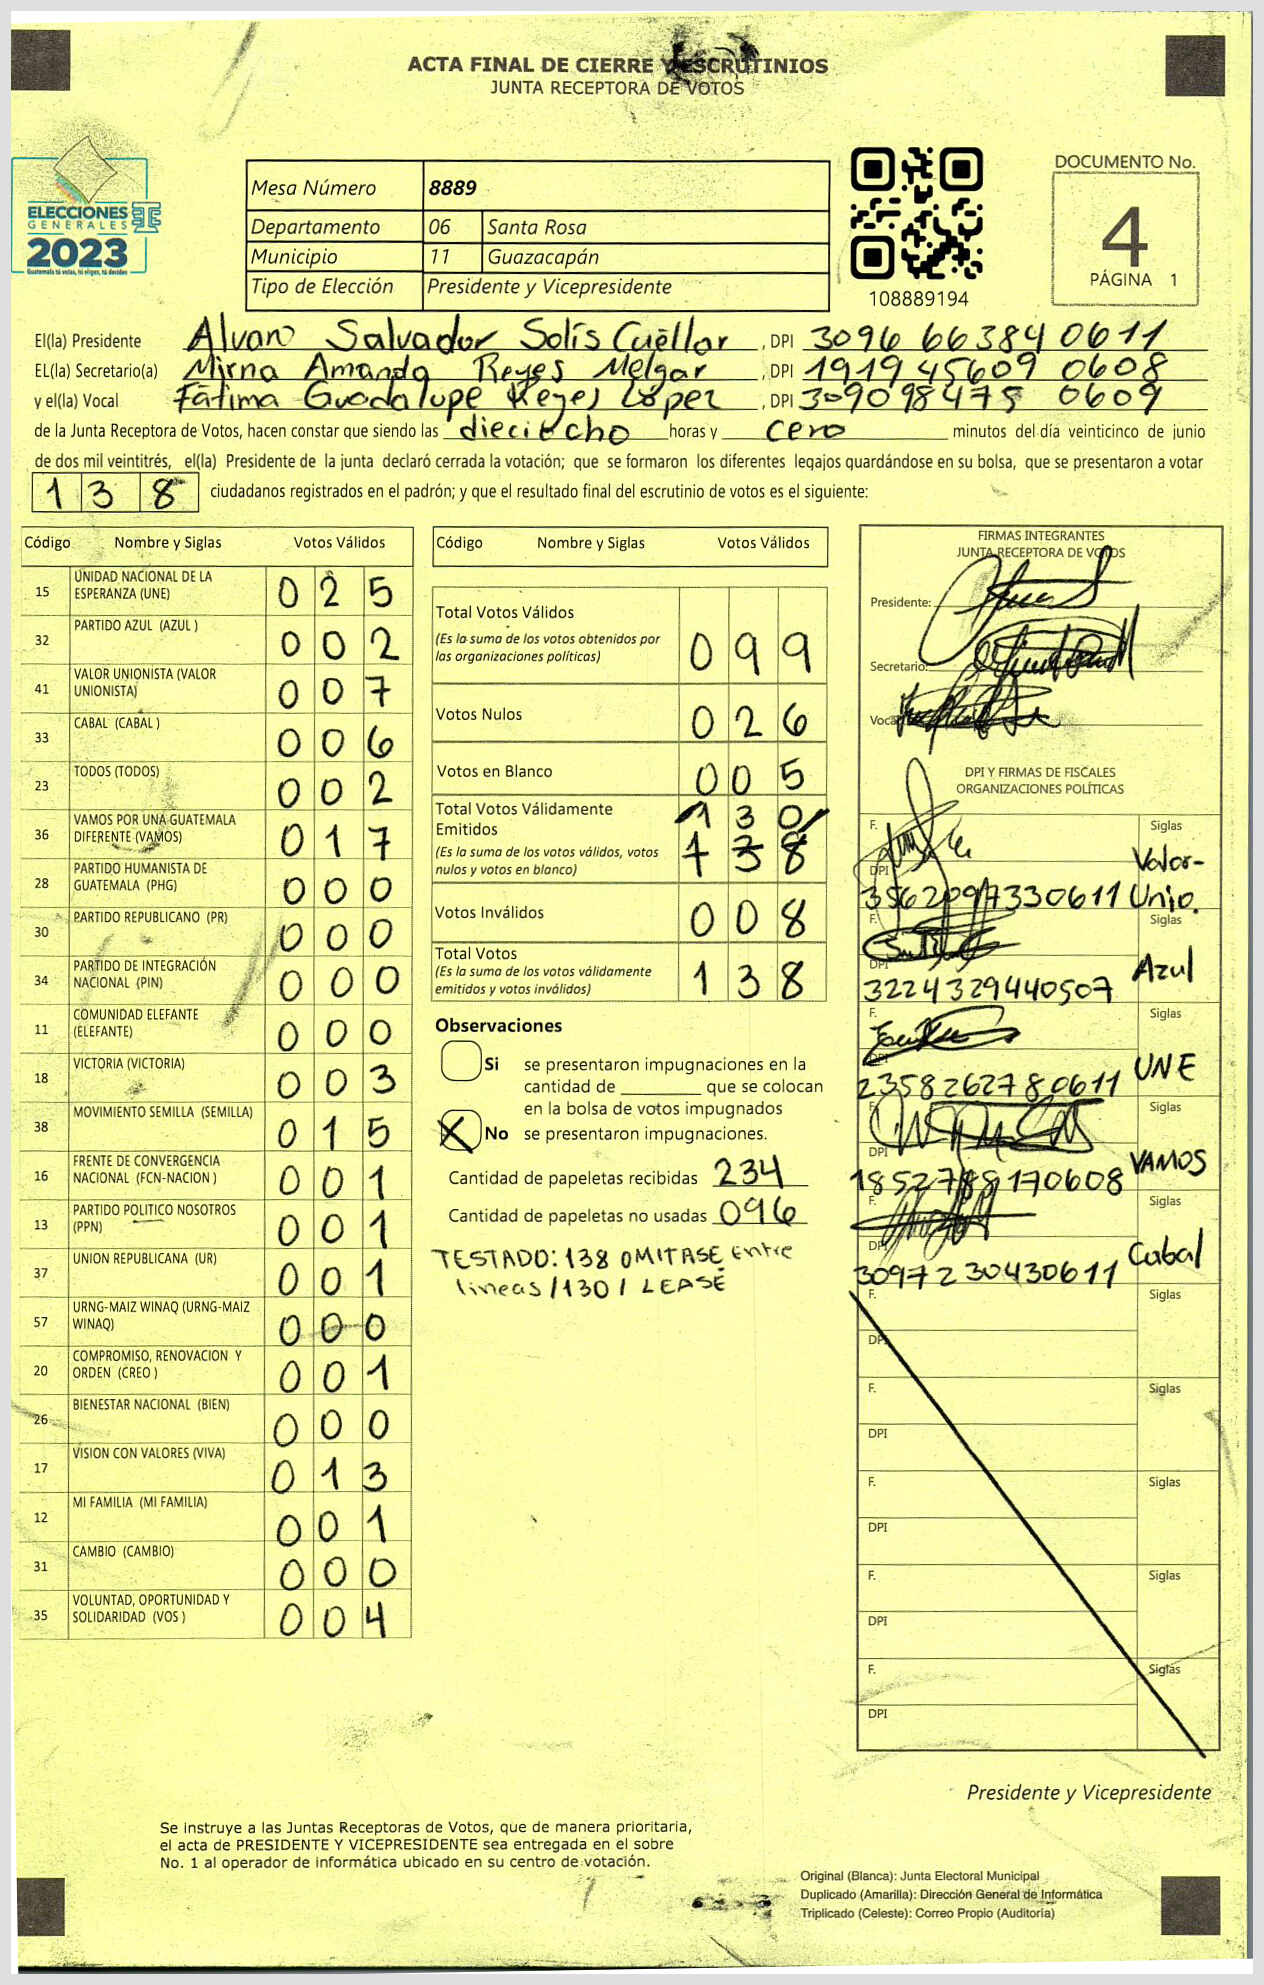 ACTA FINAL DE CIERRE Y ESCRUTINIOS
JUNTA RECEPTORA DE VOTOS
ELECCIONES
GENERALES
2023
Guatemala tú votas, tú eliges, tú decides
Mesa Número 8889
Departamento 06 Santa Rosa
Municipio 11 Guazacapán
Tipo de Elección Presidente y Vicepresidente
108889194
DOCUMENTO No.
4
PÁGINA 1
El(la) Presidente Alvaro Salvador Solís Cuéllar, DPI 3096 66384 0611
EL(la) Secretario(a) Mirna Amanda Reyes Melgar, DPI 1919 45609 0608
y el(la) Vocal Fátima Guadalupe Reyes López, DPI 309098475 0609
de la Junta Receptora de Votos, hacen constar que siendo las dieciocho horas y cero minutos del día veinticinco de junio
de dos mil veintitrés, el(la) Presidente de la junta declaró cerrada la votación; que se formaron los diferentes legajos guardándose en su bolsa, que se presentaron a votar
138 ciudadanos registrados en el padrón; y que el resultado final del escrutinio de votos es el siguiente:
Código Nombre y Siglas Votos Válidos
15 UNIDAD NACIONAL DE LA ESPERANZA (UNE) 025
32 PARTIDO AZUL (AZUL ) 002
41 VALOR UNIONISTA (VALOR UNIONISTA) 007
33 CABAL (CABAL ) 006
23 TODOS (TODOS) 002
36 VAMOS POR UNA GUATEMALA DIFERENTE (VAMOS) 017
28 PARTIDO HUMANISTA DE GUATEMALA (PHG) 000
30 PARTIDO REPUBLICANO (PR) 000
34 PARTIDO DE INTEGRACIÓN NACIONAL (PIN) 000
11 COMUNIDAD ELEFANTE (ELEFANTE) 000
18 VICTORIA (VICTORIA) 003
38 MOVIMIENTO SEMILLA (SEMILLA) 015
16 FRENTE DE CONVERGENCIA NACIONAL (FCN-NACION ) 001
13 PARTIDO POLITICO NOSOTROS (PPN) 001
37 UNION REPUBLICANA (UR) 001
57 URNG-MAIZ WINAQ (URNG-MAIZ WINAQ) 000
20 COMPROMISO, RENOVACION Y ORDEN (CREO ) 001
26 BIENESTAR NACIONAL (BIEN) 000
17 VISION CON VALORES (VIVA) 013
12 MI FAMILIA (MI FAMILIA) 001
31 CAMBIO (CAMBIO) 000
35 VOLUNTAD, OPORTUNIDAD Y SOLIDARIDAD (VOS ) 004
Código Nombre y Siglas Votos Válidos
Total Votos Válidos
(Es la suma de los votos obtenidos por
las organizaciones políticas) 099
Votos Nulos 026
Votos en Blanco 005
Total Votos Válidamente 130
Emitidos
(Es la suma de los votos válidos, votos
nulos y votos en blanco) 138
Votos Inválidos 008
Total Votos
(Es la suma de los votos válidamente
emitidos y votos inválidos) 138
Observaciones
Si se presentaron impugnaciones en la
cantidad de ________ que se colocan
en la bolsa de votos impugnados
X No se presentaron impugnaciones.
Cantidad de papeletas recibidas 234
Cantidad de papeletas no usadas 096
TESTADO: 138 OMITASE Entre
lineas /130/ LEASE
FIRMAS INTEGRANTES
JUNTA RECEPTORA DE VOTOS
Presidente:
Secretario:
Vocal
DPI Y FIRMAS DE FISCALES
ORGANIZACIONES POLÍTICAS
F. Siglas
DPI 3562097330611 Valor-Unio.
F. Siglas
DPI 3224329440507 Azul
F. Siglas
DPI 2358262780611 UNE
F. Siglas
DPI 1852788170608 VAMOS
F. Siglas
DPI 3097230430611 Cabal
F. Siglas
DPI
F. Siglas
DPI
F. Siglas
DPI
F. Siglas
DPI
F. Siglas
DPI
Presidente y Vicepresidente
Se instruye a las Juntas Receptoras de Votos, que de manera prioritaria,
el acta de PRESIDENTE Y VICEPRESIDENTE sea entregada en el sobre
No. 1 al operador de informática ubicado en su centro de votación.
Original (Blanca): Junta Electoral Municipal
Duplicado (Amarilla): Dirección General de Informática
Triplicado (Celeste): Correo Propio (Auditoria)